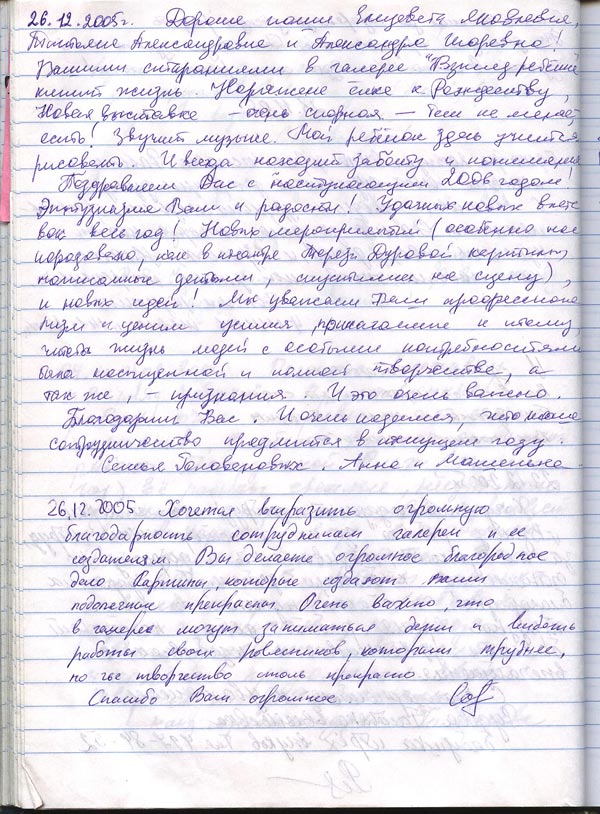 26.12.2005г. Дорогие наши Елизавета Яковлевна,
Татьяна Александровна и Александра Игоревна!
Вашими стараниями в галерее "Взгляд ребёнка"
кипит жизнь. Наряжена ёлка к Рождеству,
Новая выставка – очень – тем не менее,
есть! Звучит музыка. Мой ребёнок здесь учится
рисовать. И всегда находит заботу и понимание
Поздравляем Вас с наступающим 2006 годом!
Энтузиазма Вам и радости! Удачных новых выста
вок весь год! Новых мероприятий (особенно нас
порадовало, как в театре Терезы Дуровой картины,
написанные детьми, спустились на сцену),
и новых идей! Мы уважаем Ваш профессиона
лизм и ценим усилия, прилагаемые к тому,
чтобы жизнь людей с особыми потребностями
была насыщенной и полной творчества, а
так же, – признания. И это очень важно.
Благодарим Вас. И очень надеемся, что наше
сотрудничество продлится в текущем году.
Семья Головановых. Анна и Машенька
26.12.2005 Хочется выразить огромную
благодарность сотрудникам галереи и ее
создателям. Вы делаете огромное благородное
дело. Картины, которые создают ваши
подопечные прекрасны. Очень важно, что
в галерее могут заниматься дети и видеть
работы своих ровесников, которым труднее,
но чье творчество столь прекрасно
Спасибо Вам огромное.